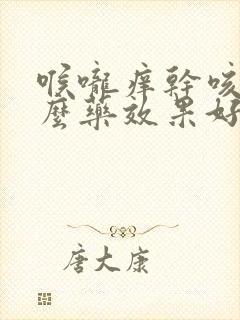 喉嚨痒幹咳
麼藥效果好
唐大康